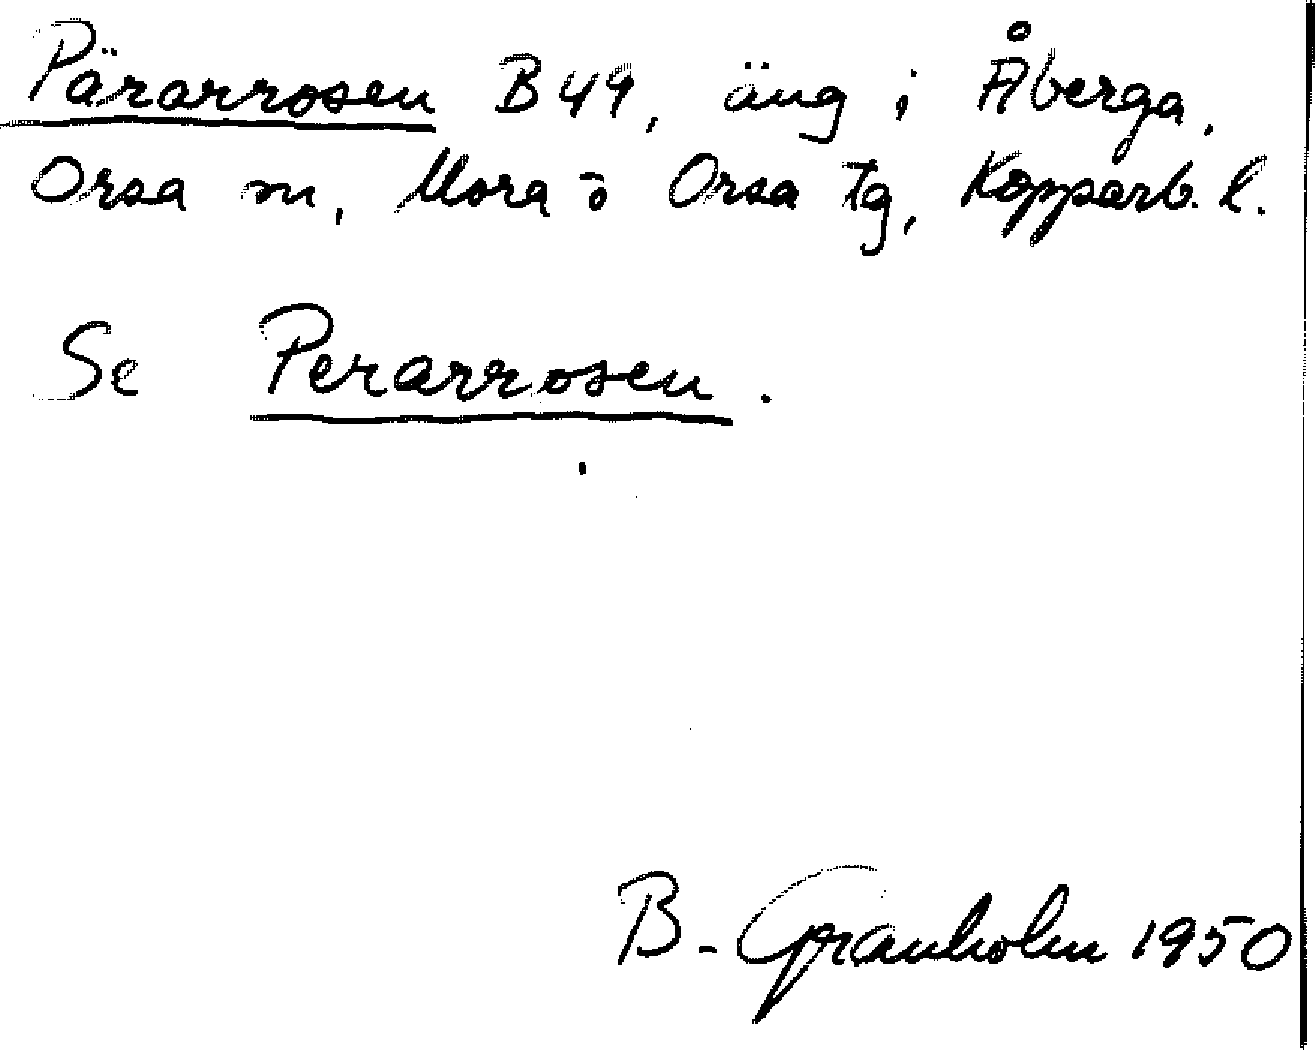 Pärarrosen B 49, äng i Åberga,
Orsa sn, Mora o Orsa tg, Kopparb. l.
Se Perarrosen.
B. Granholm 1950